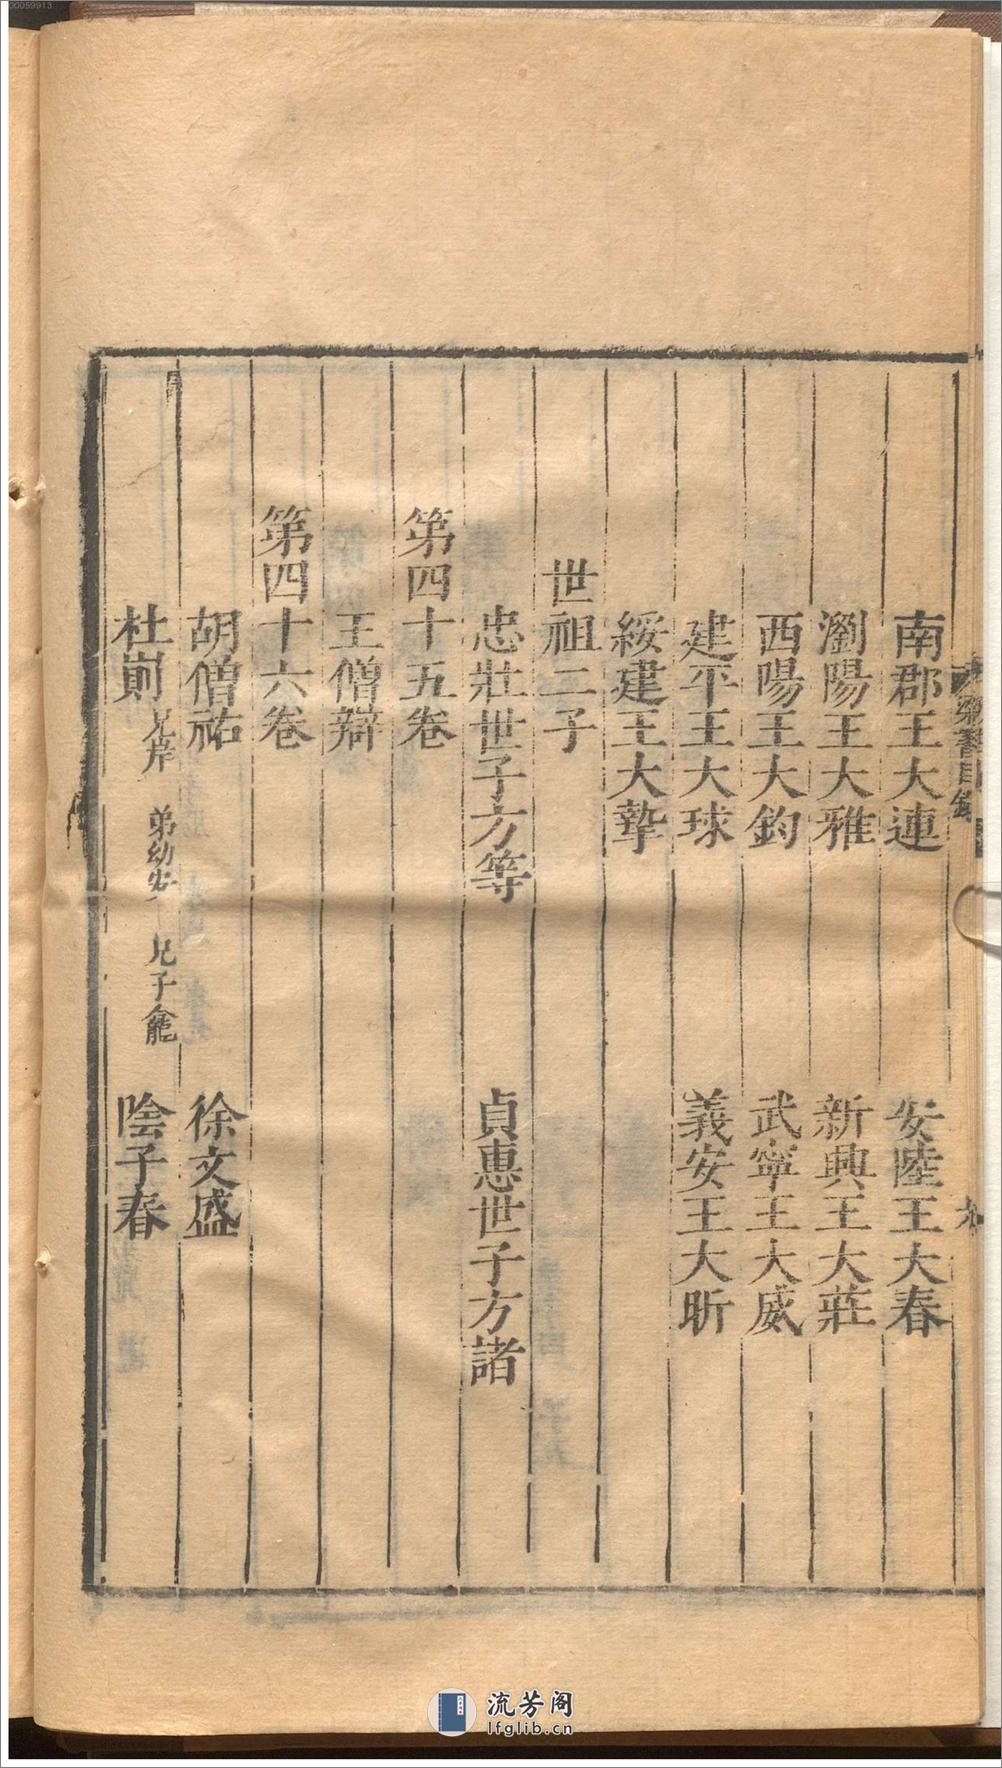 00059913
梁書目錄
九
南郡王大連　安陸王大春
瀏陽王大雅　新興王大莊
西陽王大鈞　武寧王大威
建平王大球　義安王大昕
綏建王大摯
世祖二子
忠壯世子方等　貞惠世子方諸
第四十五卷
王僧辯
第四十六卷
胡僧祐　徐文盛
杜崱　兄岸　弟幼安　兄子龕　陰子春
流芳阁
lfglib.cn